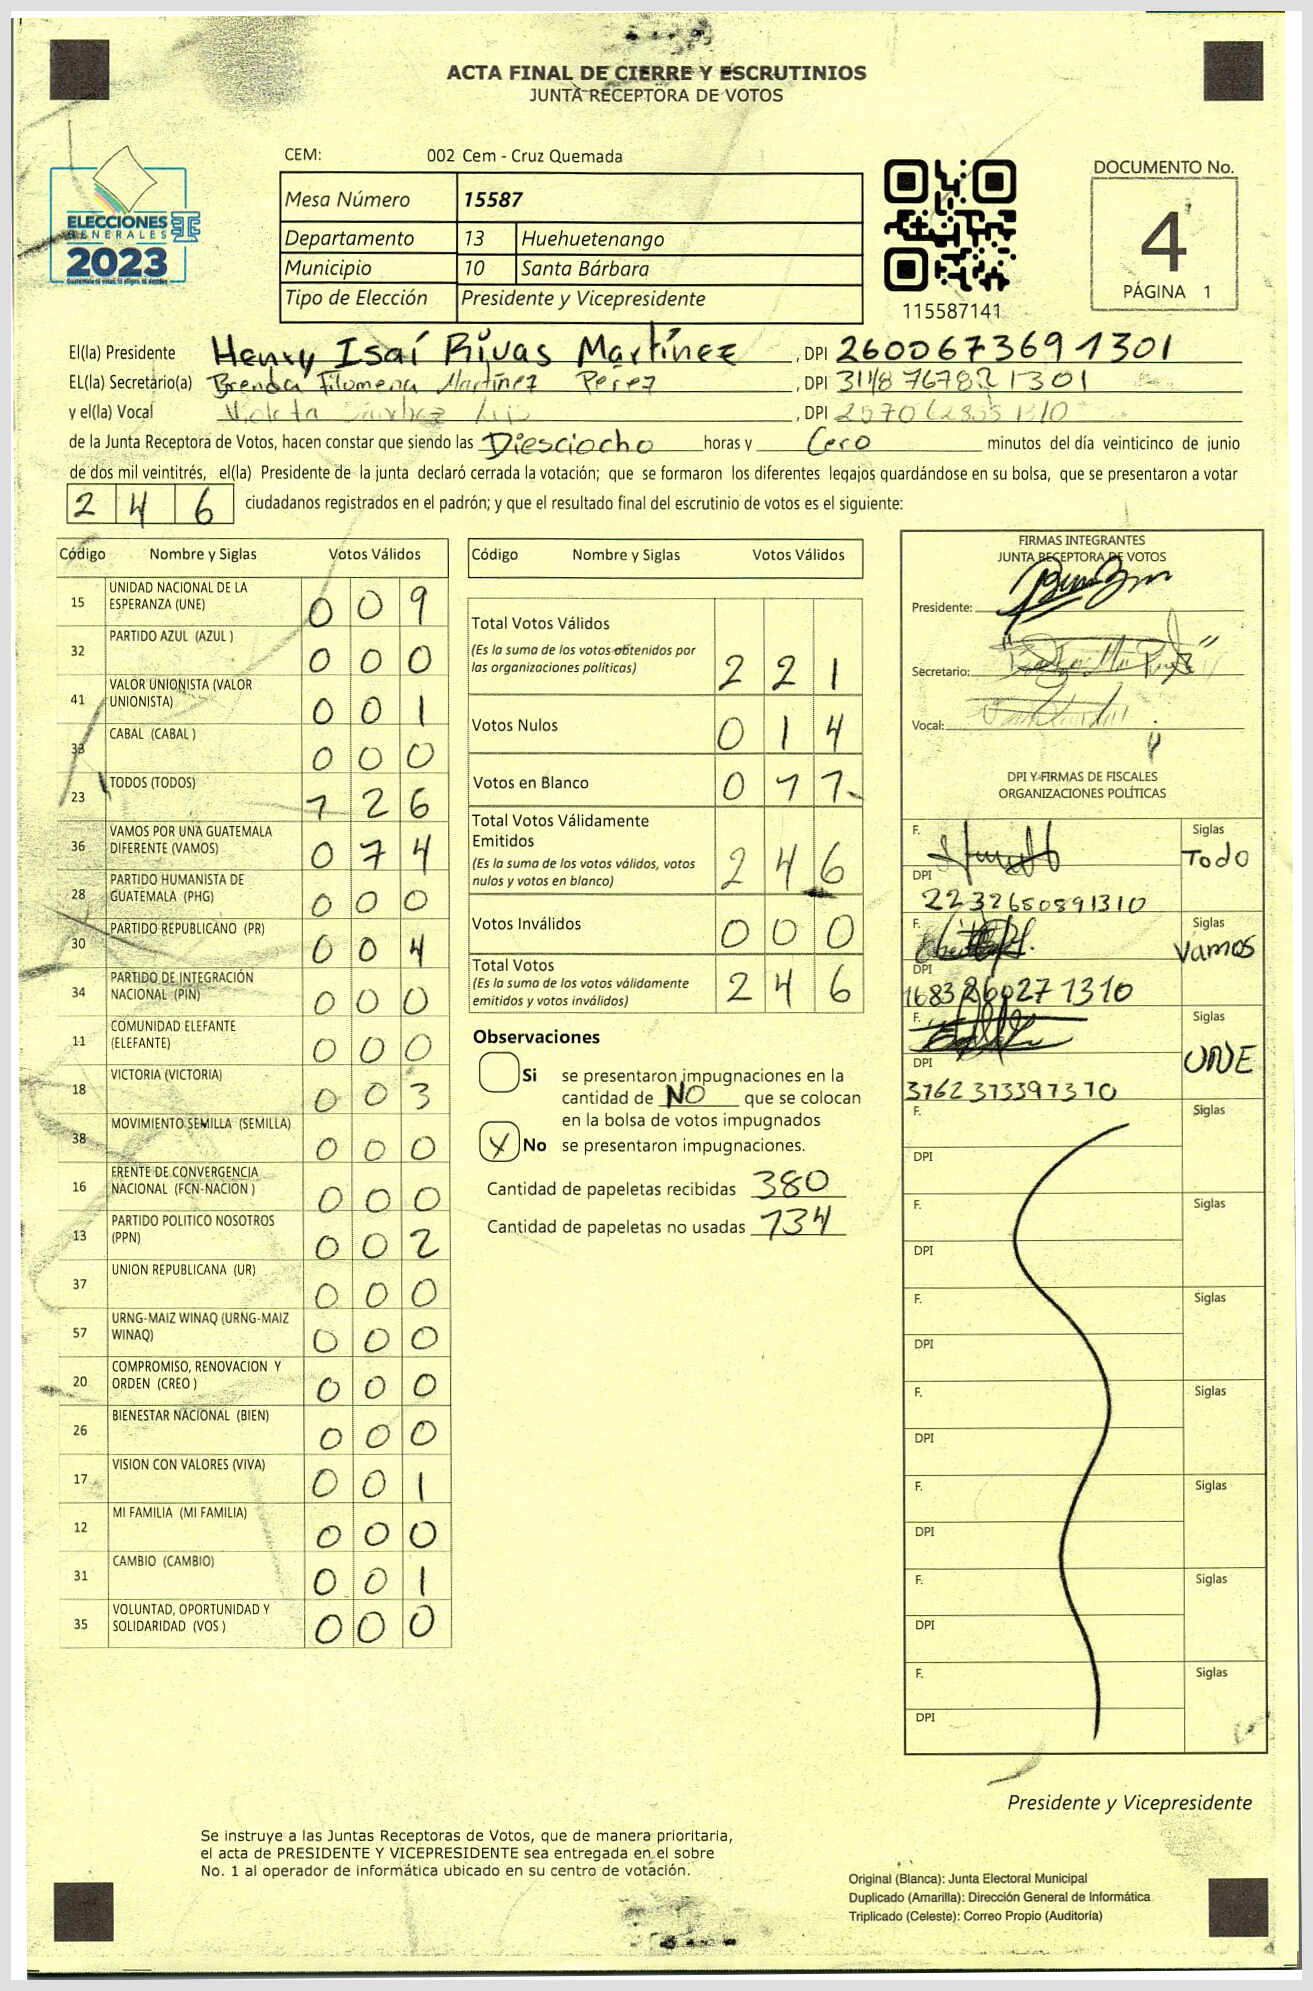 ACTA FINAL DE CIERRE Y ESCRUTINIOS
JUNTA RECEPTORA DE VOTOS
CEM: 002 Cem - Cruz Quemada
ELECCIONES
GENERALES
2023
Mesa Número 15587
Departamento 13 Huehuetenango
Municipio 10 Santa Bárbara
Tipo de Elección Presidente y Vicepresidente
115587141
DOCUMENTO No.
4
PÁGINA 1
El(la) Presidente Henry Isaí Rivas Martínez, DPI 2600673691301
EL(la) Secretario(a) Brenda Filomena Martínez Pérez, DPI 3148767821301
y el(la) Vocal Violeta Sánchez, DPI
de la Junta Receptora de Votos, hacen constar que siendo las Diesciocho horas y Cero minutos del día veinticinco de junio
de dos mil veintitrés, el(la) Presidente de la junta declaró cerrada la votación; que se formaron los diferentes legajos quardándose en su bolsa, que se presentaron a votar
246 ciudadanos registrados en el padrón; y que el resultado final del escrutinio de votos es el siguiente:
Código Nombre y Siglas Votos Válidos
15 UNIDAD NACIONAL DE LA ESPERANZA (UNE) 009
32 PARTIDO AZUL (AZUL ) 000
41 VALOR UNIONISTA (VALOR UNIONISTA) 001
33 CABAL (CABAL ) 000
23 TODOS (TODOS) 126
36 VAMOS POR UNA GUATEMALA DIFERENTE (VAMOS) 074
28 PARTIDO HUMANISTA DE GUATEMALA (PHG) 000
30 PARTIDO REPUBLICANO (PR) 004
34 PARTIDO DE INTEGRACIÓN NACIONAL (PIN) 000
11 COMUNIDAD ELEFANTE (ELEFANTE) 000
18 VICTORIA (VICTORIA) 003
38 MOVIMIENTO SEMILLA (SEMILLA) 000
16 FRENTE DE CONVERGENCIA NACIONAL (FCN-NACION ) 000
13 PARTIDO POLITICO NOSOTROS (PPN) 002
37 UNION REPUBLICANA (UR) 000
57 URNG-MAIZ WINAQ (URNG-MAIZ WINAQ) 000
20 COMPROMISO, RENOVACION Y ORDEN (CREO ) 000
26 BIENESTAR NACIONAL (BIEN) 000
17 VISION CON VALORES (VIVA) 001
12 MI FAMILIA (MI FAMILIA) 000
31 CAMBIO (CAMBIO) 001
35 VOLUNTAD, OPORTUNIDAD Y SOLIDARIDAD (VOS ) 000
Código Nombre y Siglas Votos Válidos
Total Votos Válidos 221
(Es la suma de los votos obtenidos por
las organizaciones políticas)
Votos Nulos 014
Votos en Blanco 011
Total Votos Válidamente
Emitidos 246
(Es la suma de los votos válidos, votos
nulos y votos en blanco)
Votos Inválidos 000
Total Votos 246
(Es la suma de los votos válidamente
emitidos y votos inválidos)
Observaciones
Si se presentaron impugnaciones en la
cantidad de NO que se colocan
en la bolsa de votos impugnados
X No se presentaron impugnaciones.
Cantidad de papeletas recibidas 380
Cantidad de papeletas no usadas 134
FIRMAS INTEGRANTES
JUNTA RECEPTORA DE VOTOS
Presidente:
Secretario:
Vocal:
DPI Y FIRMAS DE FISCALES
ORGANIZACIONES POLÍTICAS
F. Siglas
Todo
DPI
2232650891310
F. Siglas
Vamos
DPI
1683260271310
F. Siglas
UNE
DPI
3162313391310
F. Siglas
DPI
F. Siglas
DPI
F. Siglas
DPI
F. Siglas
DPI
F. Siglas
DPI
F. Siglas
DPI
F. Siglas
DPI
Presidente y Vicepresidente
Se instruye a las Juntas Receptoras de Votos, que de manera prioritaria,
el acta de PRESIDENTE Y VICEPRESIDENTE sea entregada en el sobre
No. 1 al operador de informática ubicado en su centro de votación.
Original (Blanca): Junta Electoral Municipal
Duplicado (Amarilla): Dirección General de Informática
Triplicado (Celeste): Correo Propio (Auditoría)